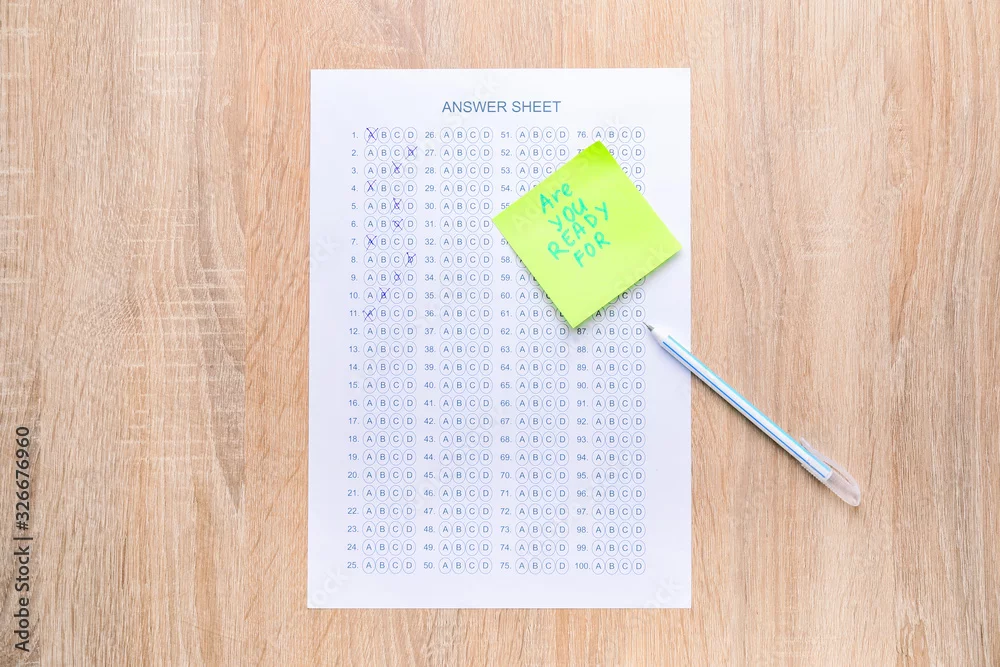 ANSWER SHEET
1. A B C D 26. A B C D 51. A B C D 76. A B C D
2. A B C D 27. A B C D 52. A B C D C D
3. A B C D 28. A B C D 53. A B C D
4. A B C D 29. A B C D 54. A
5. A B C D 30. A B C D
6. A B C D 31. A B C D
7. A B C D 32. A B C D
8. A B C D 33. A B C D
9. A B C D 34. A B C D 59. A
10. A B C D 35. A B C D 60. A B C D
11. A B C D 36. A B C D 61. A B C A B C D
12. A B C D 37. A B C D 62. A B C D 87. A B C D
13. A B C D 38. A B C D 63. A B C D 88. A B C D
14. A B C D 39. A B C D 64. A B C D 89. A B C D
15. A B C D 40. A B C D 65. A B C D 90. A B C D
16. A B C D 41. A B C D 66. A B C D 91. A B C D
17. A B C D 42. A B C D 67. A B C D 92. A B C D
18. A B C D 43. A B C D 68. A B C D 93. A B C D
19. A B C D 44. A B C D 69. A B C D 94. A B C D
20. A B C D 45. A B C D 70. A B C D 95. A B C D
21. A B C D 46. A B C D 71. A B C D 96. A B C D
22. A B C D 47. A B C D 72. A B C D 97. A B C D
23. A B C D 48. A B C D 73. A B C D 98. A B C D
24. A B C D 49. A B C D 74. A B C D 99. A B C D
25. A B C D 50. A B C D 75. A B C D 100. A B C D
Are
YOU
READY
FOR
Adobe Stock | 326676960